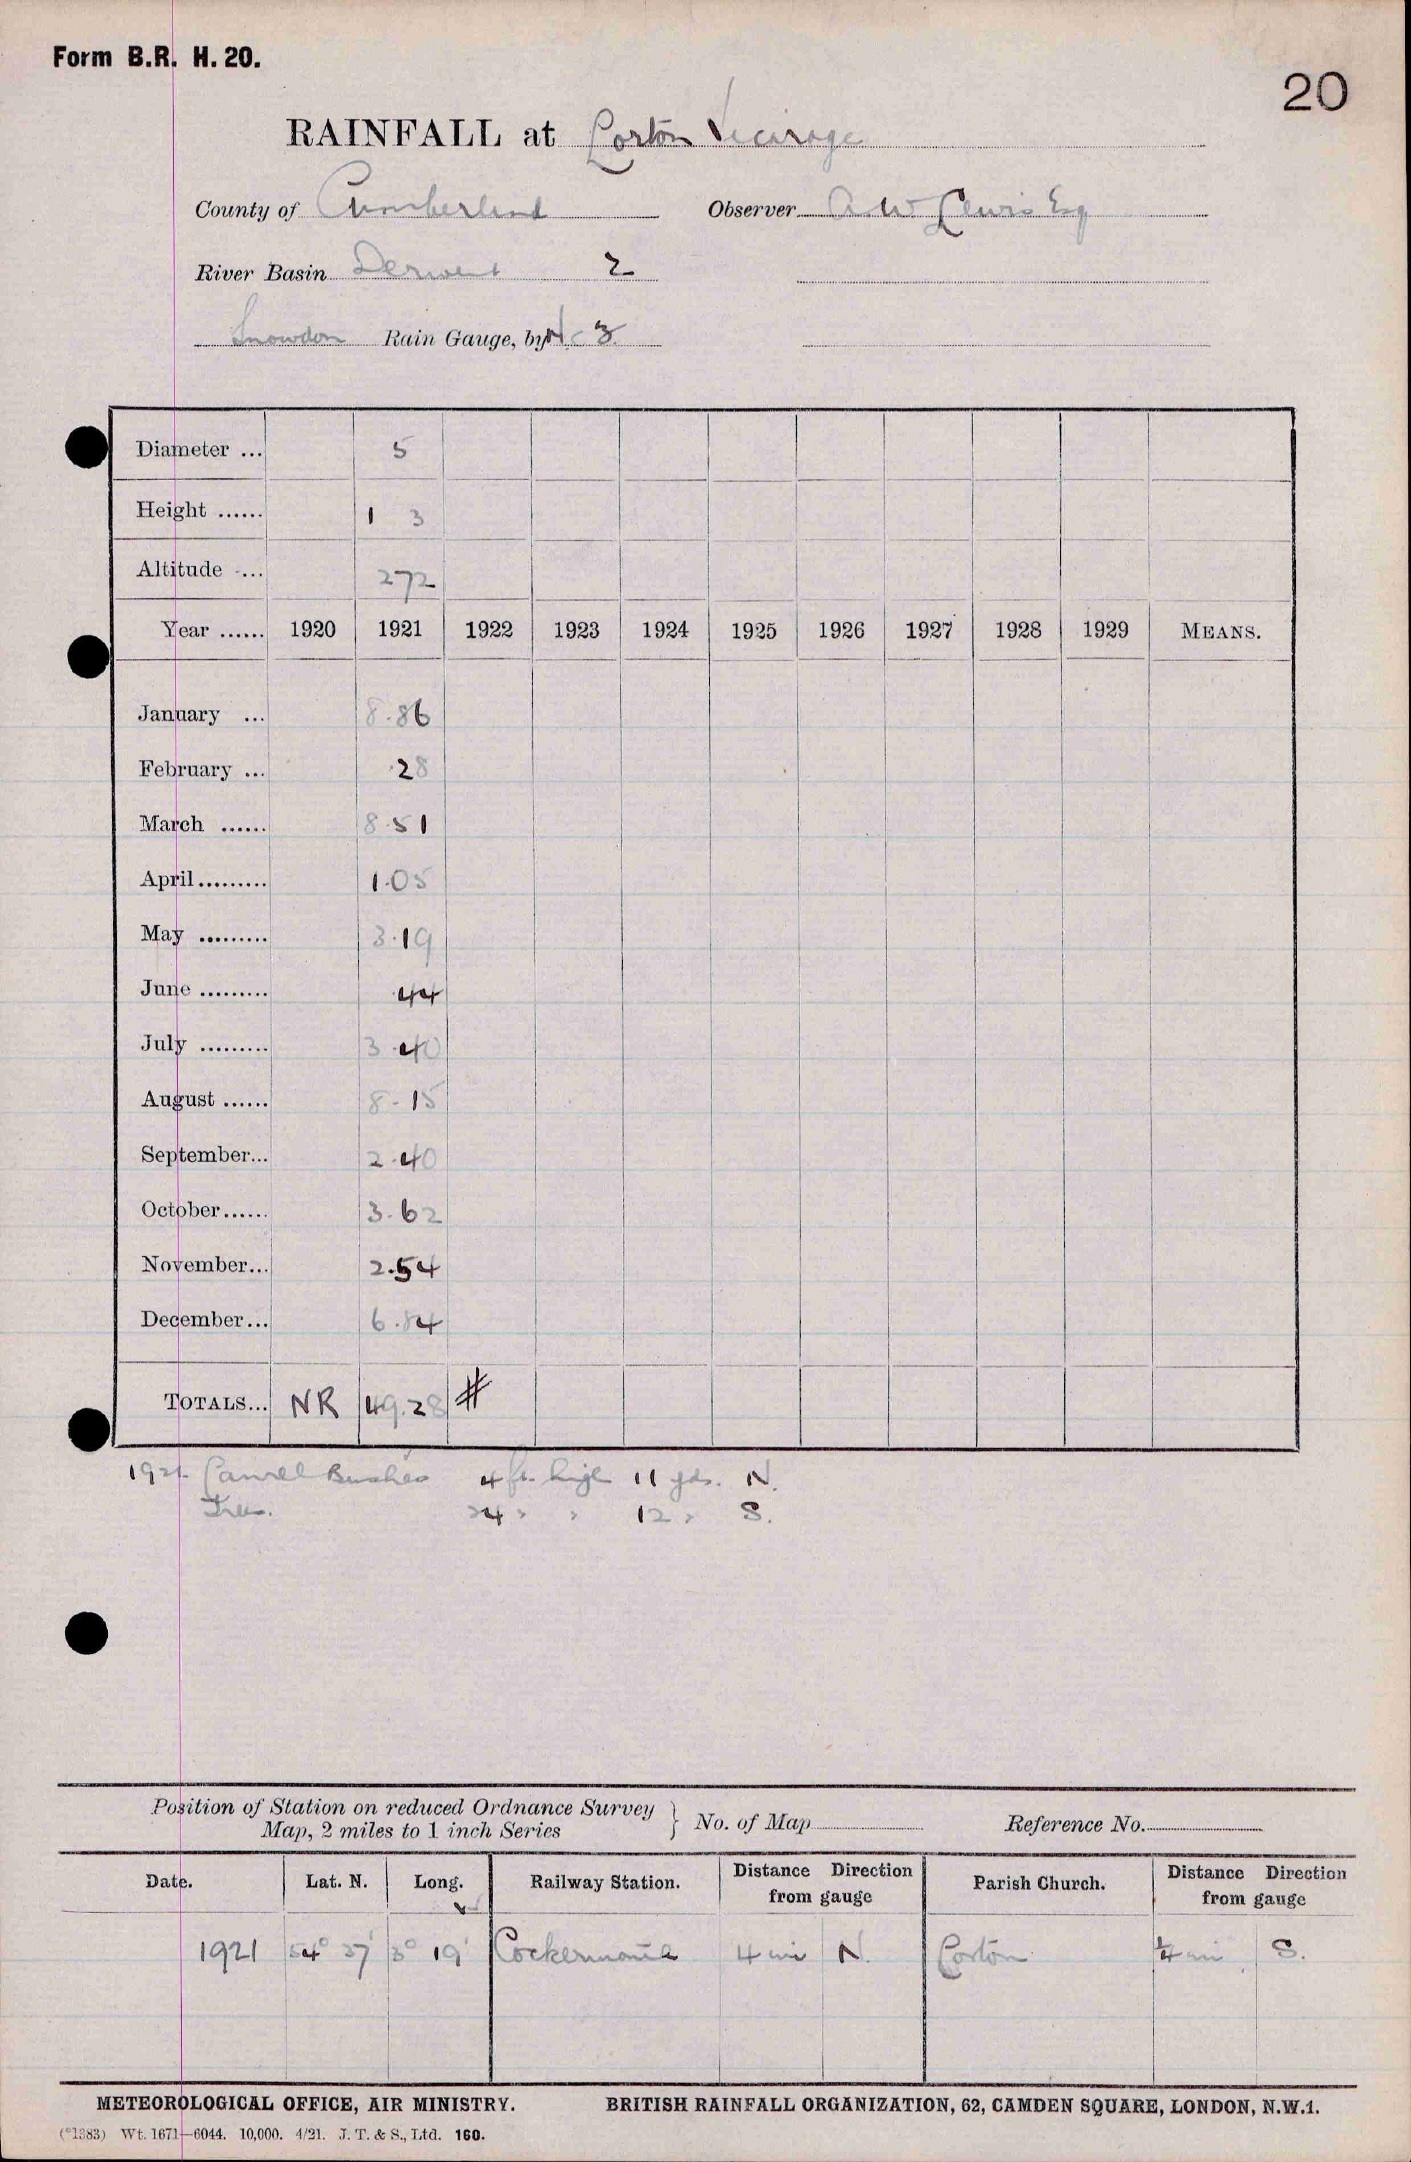 Form B.R. H. 20.
20
RAINFALL at Lorton Vicarage
County of Cumberland Observer A. W. Lewis Esq
River Basin Derwent 2
Snowdon Rain Gauge, by
Diameter ... 5
Height ...... 1 3
Altitude ... 272
Year ...... 1920 1921 1922 1923 1924 1925 1926 1927 1928 1929 MEANS.
January ... 8.86
February ... .28
March ...... 8.51
April......... 1.05
May ......... 3.19
June ......... .44
July ......... 3.40
August ...... 8.15
September... 2.40
October...... 3.62
November... 2.54
December... 6.84
TOTALS... NR 49.28 #
1921. Laurel Bushes 4 ft. high 11 yds. N.
Trees. 24 " " 12 " S.
Position of Station on reduced Ordnance Survey
Map, 2 miles to 1 inch Series } No. of Map Reference No.
Date. Lat. N. Long. W Railway Station. Distance Direction from gauge Parish Church. Distance Direction from gauge
1921 54° 37' 3° 19' Cockermouth 4 mi N. Lorton ¼ mi S.
METEOROLOGICAL OFFICE, AIR MINISTRY. BRITISH RAINFALL ORGANIZATION, 62, CAMDEN SQUARE, LONDON, N.W.1.
(*1383) Wt. 1671—6044. 10,000. 4/21. J. T. & S., Ltd. 160.